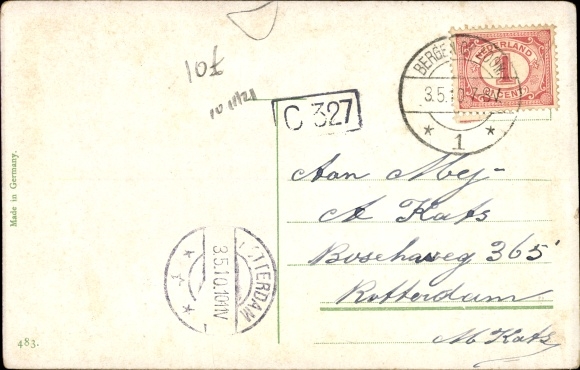 10£
NEDERLAND
1
CENT
3.5.10.7-8V
1
C 327
Made in Germany.
Aan Mej-
A Kats
Boschweg 365
Rotterdam
M Kats
3.5.10.101IV
TERDAM
483.